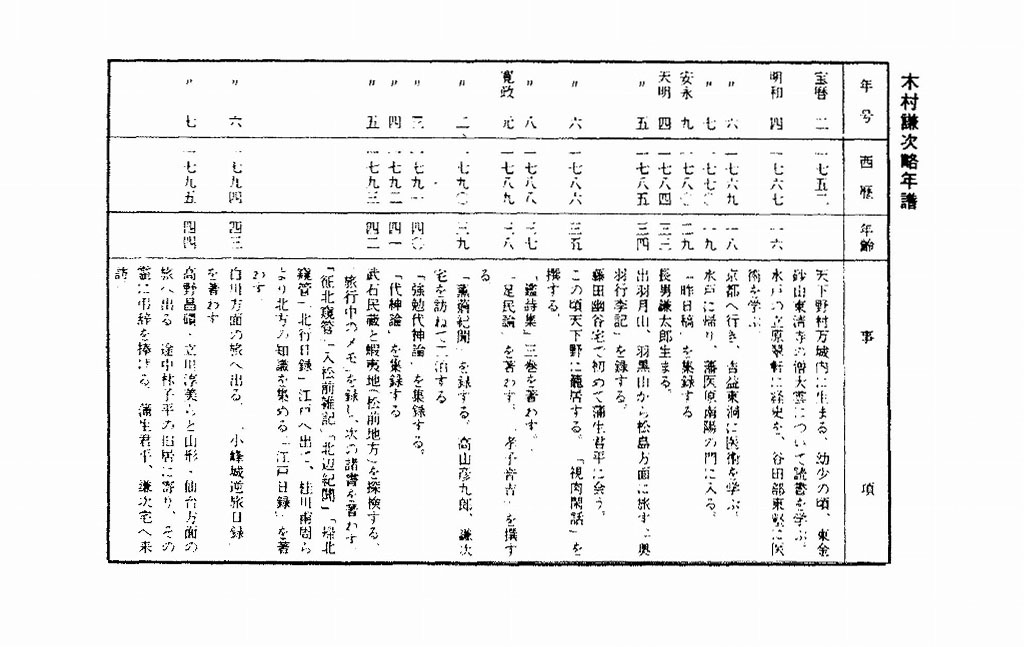 木村謙次略年譜
年号 西暦 年齢 事項
宝暦 二 一七五二 天下野村万城内に生まる、幼少の頃、東金
砂山東清寺の僧大雲について読書を学ぶ。
明和 四 一七六七 一六 水戸の立原翠軒に経史を、谷田部東壑に医
術を学ぶ
〃 六 一七六九 一八 京都へ行き、吉益東洞に医術を学ぶ。
〃 七 一七七〇 一九 水戸に帰り、藩医原南陽の門に入る。
安永 九 一七八〇 二九 「昨日稿」を集録する
天明 四 一七八四 三三 長男謙太郎生まる。
〃 五 一七八五 三四 出羽月山、羽黒山から松島方面に旅す。「奥
羽行李記」を録する。
藤田幽谷宅で初めて蒲生君平に会う。
〃 六 一七八六 三五 この頃天下野に籠居する。「視肉閑話」を
撰する。
〃 八 一七八八 三七 「鑑詩集」三巻を著わす。
寛政 元 一七八九 三八 「足民論」を著わす。「孝子音吉」を撰す
る
〃 二 一七九〇 三九 紀聞」を録する。高山彦九郎、謙次
宅を訪ねて二泊する
〃 三 一七九一 四〇 「強勉代神論」を集録する。
〃 四 一七九二 四一 「代神論」を集録する
〃 五 一七九三 四二 武石民蔵と蝦夷地(松前地方)を探検する。
旅行中のメモ」を録し、次の諸書を著わす。
「征北窺管」「入松前雑記」「北辺紀聞」「帰北
窺管」「北行日録」江戸へ出て、桂川甫周ら
より北方の知識を集める「江戸日録」を著
わす。
〃 六 一七九四 四三 白川方面の旅へ出る。「小峰城逆旅日録」
を著わす
〃 七 一七九五 四四 高野昌碩・立川淳美らと山形・仙台方面の
旅へ出る 途中林子平の旧居に寄り、その
霊に弔辞を捧げる。蒲生君平、謙次宅へ来
訪。